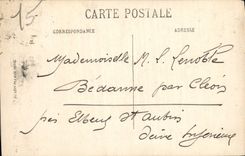 15
CARTE POSTALE
CORRESPONDANCE
ADRESSE
Mademoiselle M. L. Lenoble
Bédanne par Cléon
près Elbeuf St Aubin
Seine Inférieure